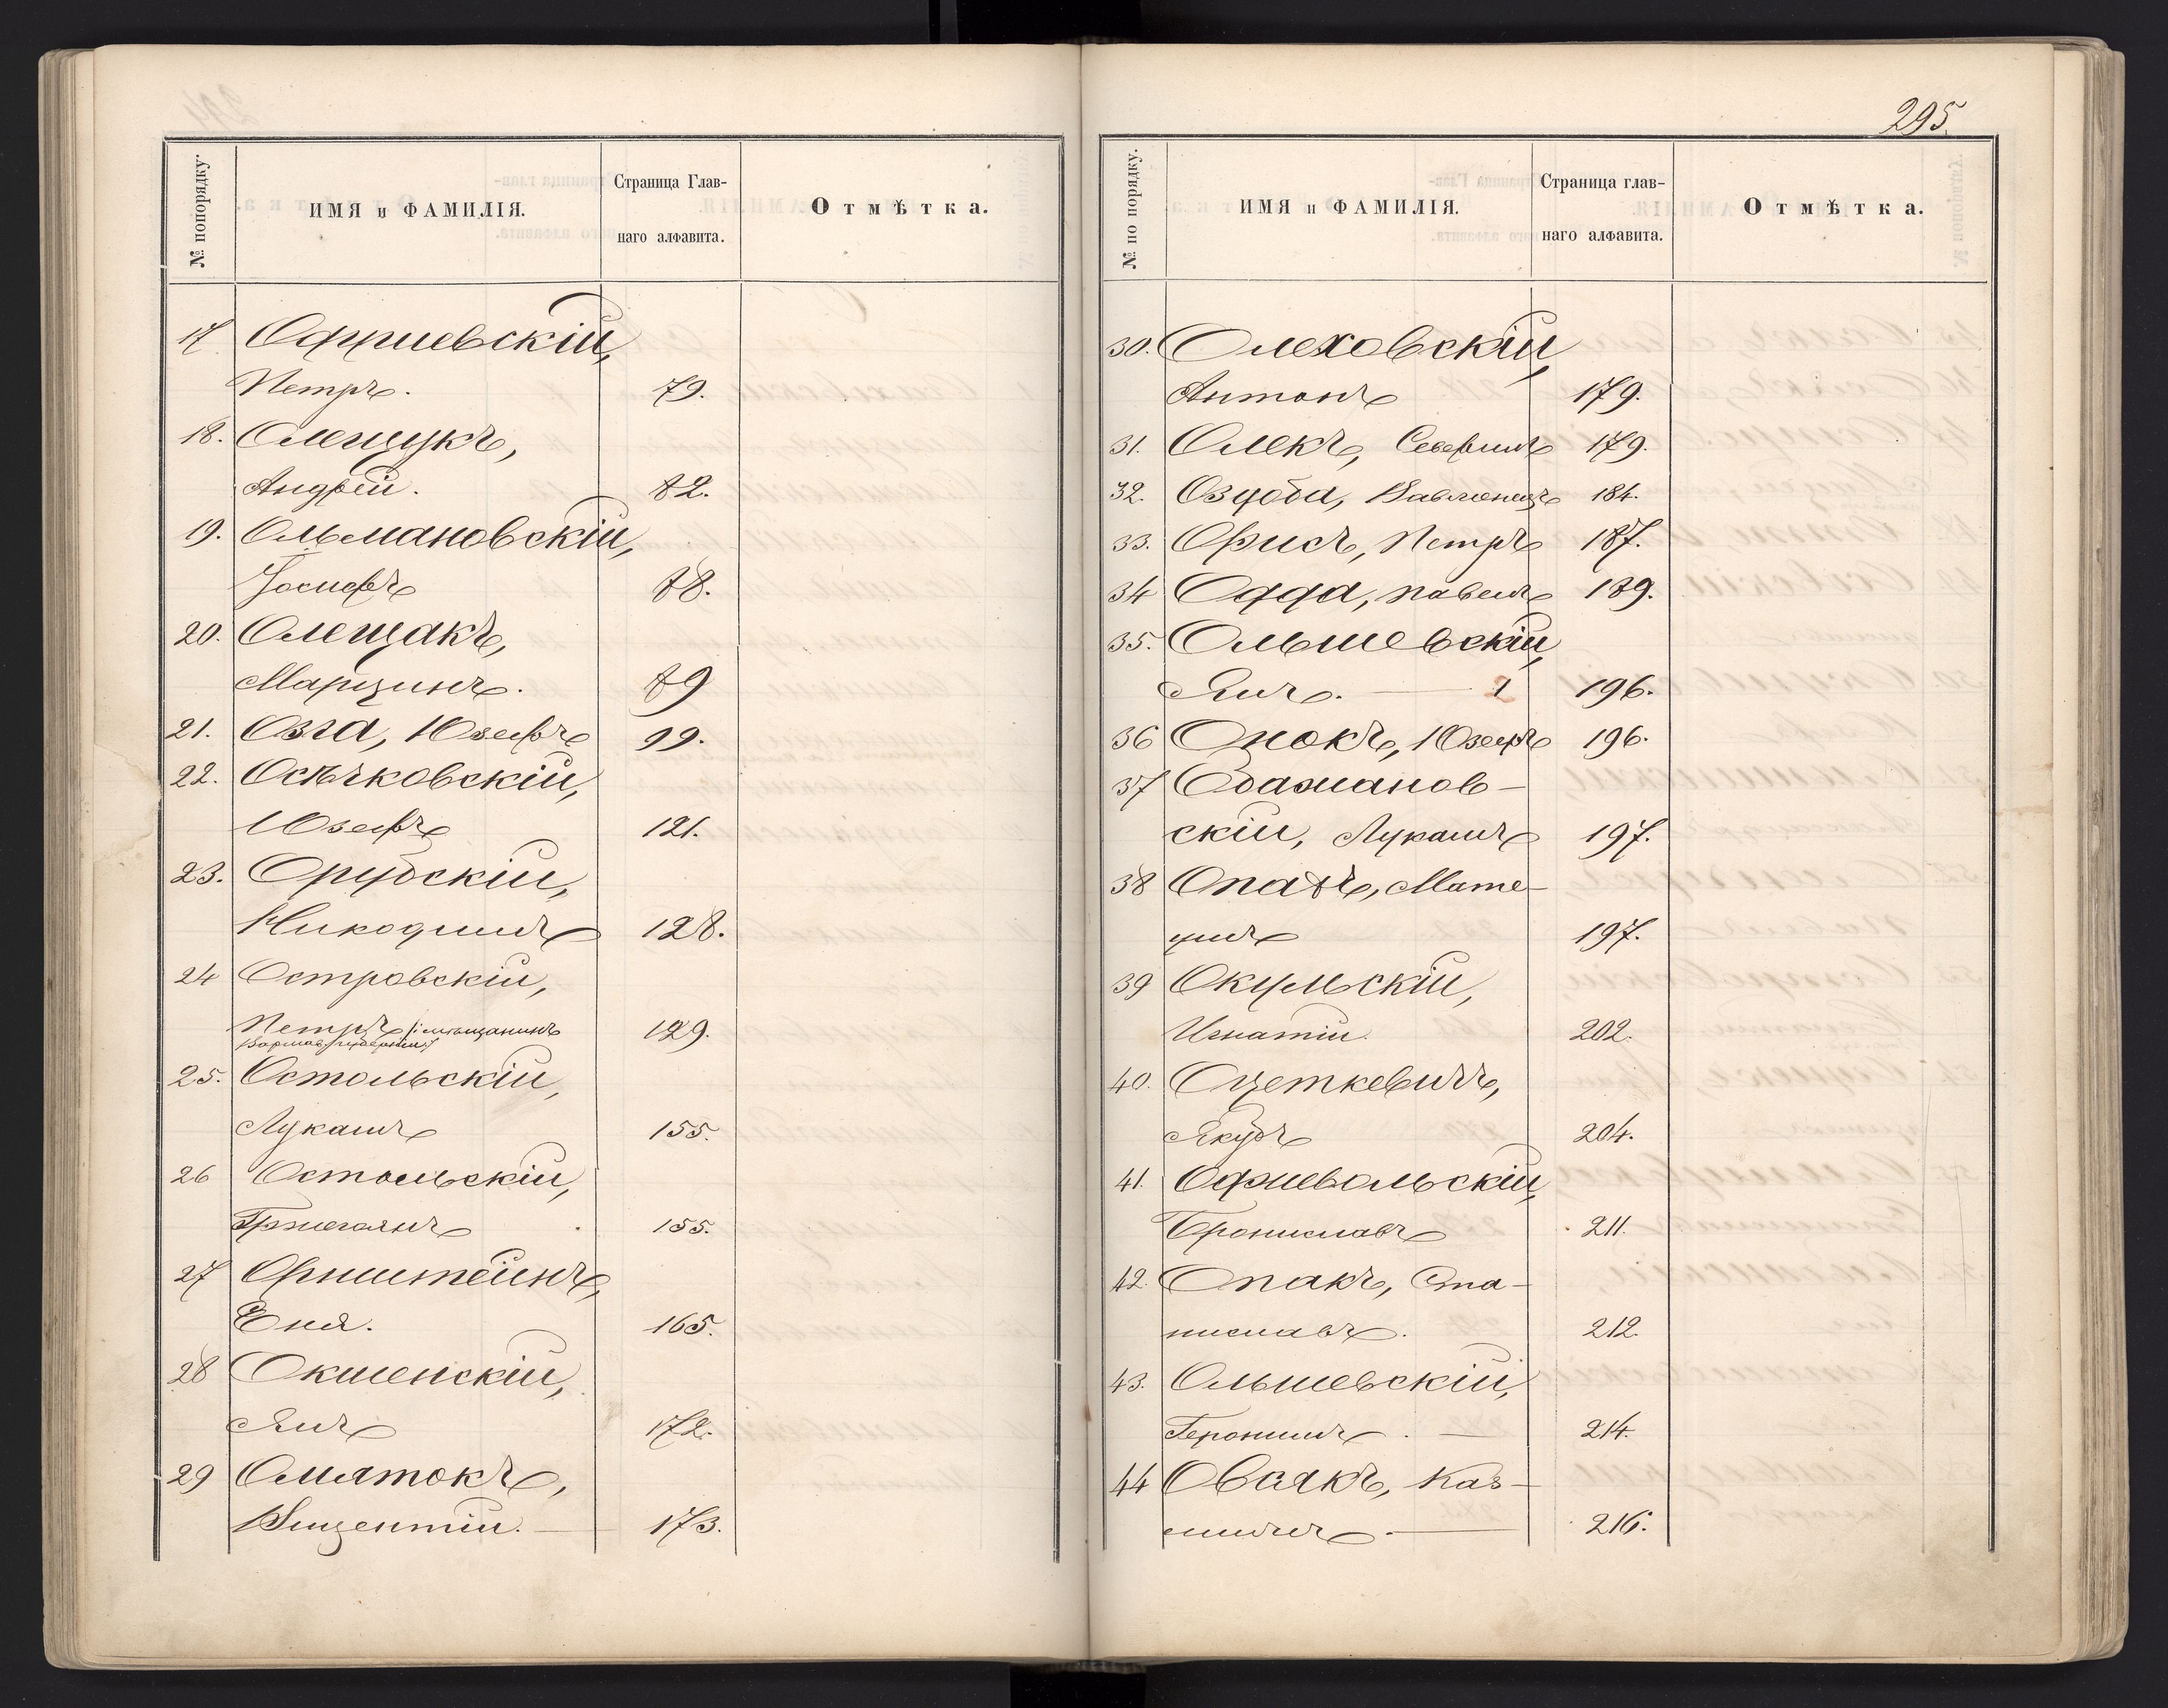 № попорядку.
ИМЯ и ФАМИЛІЯ.
Страница Глав-
наго алфавита.
Отмѣтка.
17
Петръ. 79.
18. Олещукъ,
Андрей. 82.
19. Ольмановскій,
Іосифъ 88.
20. Олещакъ,
Марцинъ. 89
21. Озга, Юзефъ 99.
22. Осѣчковскій,
Юзефъ 121.
23. Орубскій,
Никодимъ 128.
24 Островскій,
Петръ /:мѣщанинъ 129.
Варшав. губерніи:/
25. Остольскій,
Лукашъ 155.
26 Остольскій,
155.
27 Орнштейнъ,
165.
28 Окшенскій,
Янъ 172.
29 Омятокъ,
Винцентій. 173.
295.
№ по порядку.
ИМЯ и ФАМИЛІЯ.
Страница глав-
наго алфавита.
Отмѣтка.
30. Олеховскій,
Антонъ 179.
31. Олекъ, Северинъ 179.
32. Оздоба, Вавженецъ 184.
33. Орисъ, Петръ 187.
34 Одда, Павелъ 189.
35. Ольшевскій,
Янъ. 1 196.
36 Опокъ, Юзефъ 196.
37
скій, Лукашъ 197.
38 Мате-
ушъ 197.
39 Окульскій,
Игнатій. 202.
40. Оцеткевичъ,
Якубъ 204.
41.
Брониславъ 211.
42. Опакъ, Ста-
ниславъ. 212.
43. Ольшевскій,
Геронимъ. 214.
44 Овсякъ, Каз-
миръ. 216.